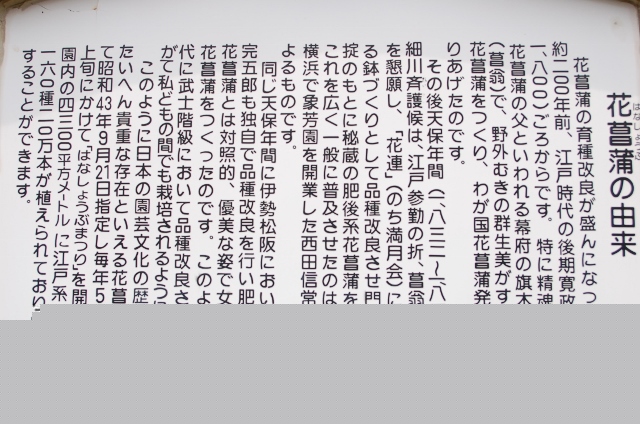 花菖蒲の由来
はなしょうぶ
花菖蒲の育種改良が盛んになっ
約二〇〇年前、江戸時代の後期寛政
一、八〇〇)ごろからです。特に精魂
花菖蒲の父といわれる幕府の旗本
(菖翁)で、野外むきの群生美がす
花菖蒲をつくり、わが国花菖蒲発
りあげたのです。
その後天保年間(一、八三二〜一、八
細川斉護候は、江戸参勤の折、菖翁
を懇願し、「花連」(のち満月会)に
る鉢づくりとして品種改良させ門
掟のもとに秘蔵の肥後系花菖蒲を
これを広く一般に普及させたのは
横浜で象芳園を開業した西田信常
よるものです。
同じ天保年間に伊勢松阪におい
完五郎も独自で品種改良を行い肥
花菖蒲とは対照的、優美な姿で女
花菖蒲をつくったのです。このよ
代に武士階級において品種改良さ
がて私どもの間でも栽培されるように
このように日本の園芸文化の歴
たいへん貴重な存在といえる花菖
て昭和43年9月21日指定し毎年5
上旬にかけて「はなしょうぶまつり」を開
園内の四三〇〇平方メートルに江戸系
一六〇種二〇万本が植えられており
することができます。